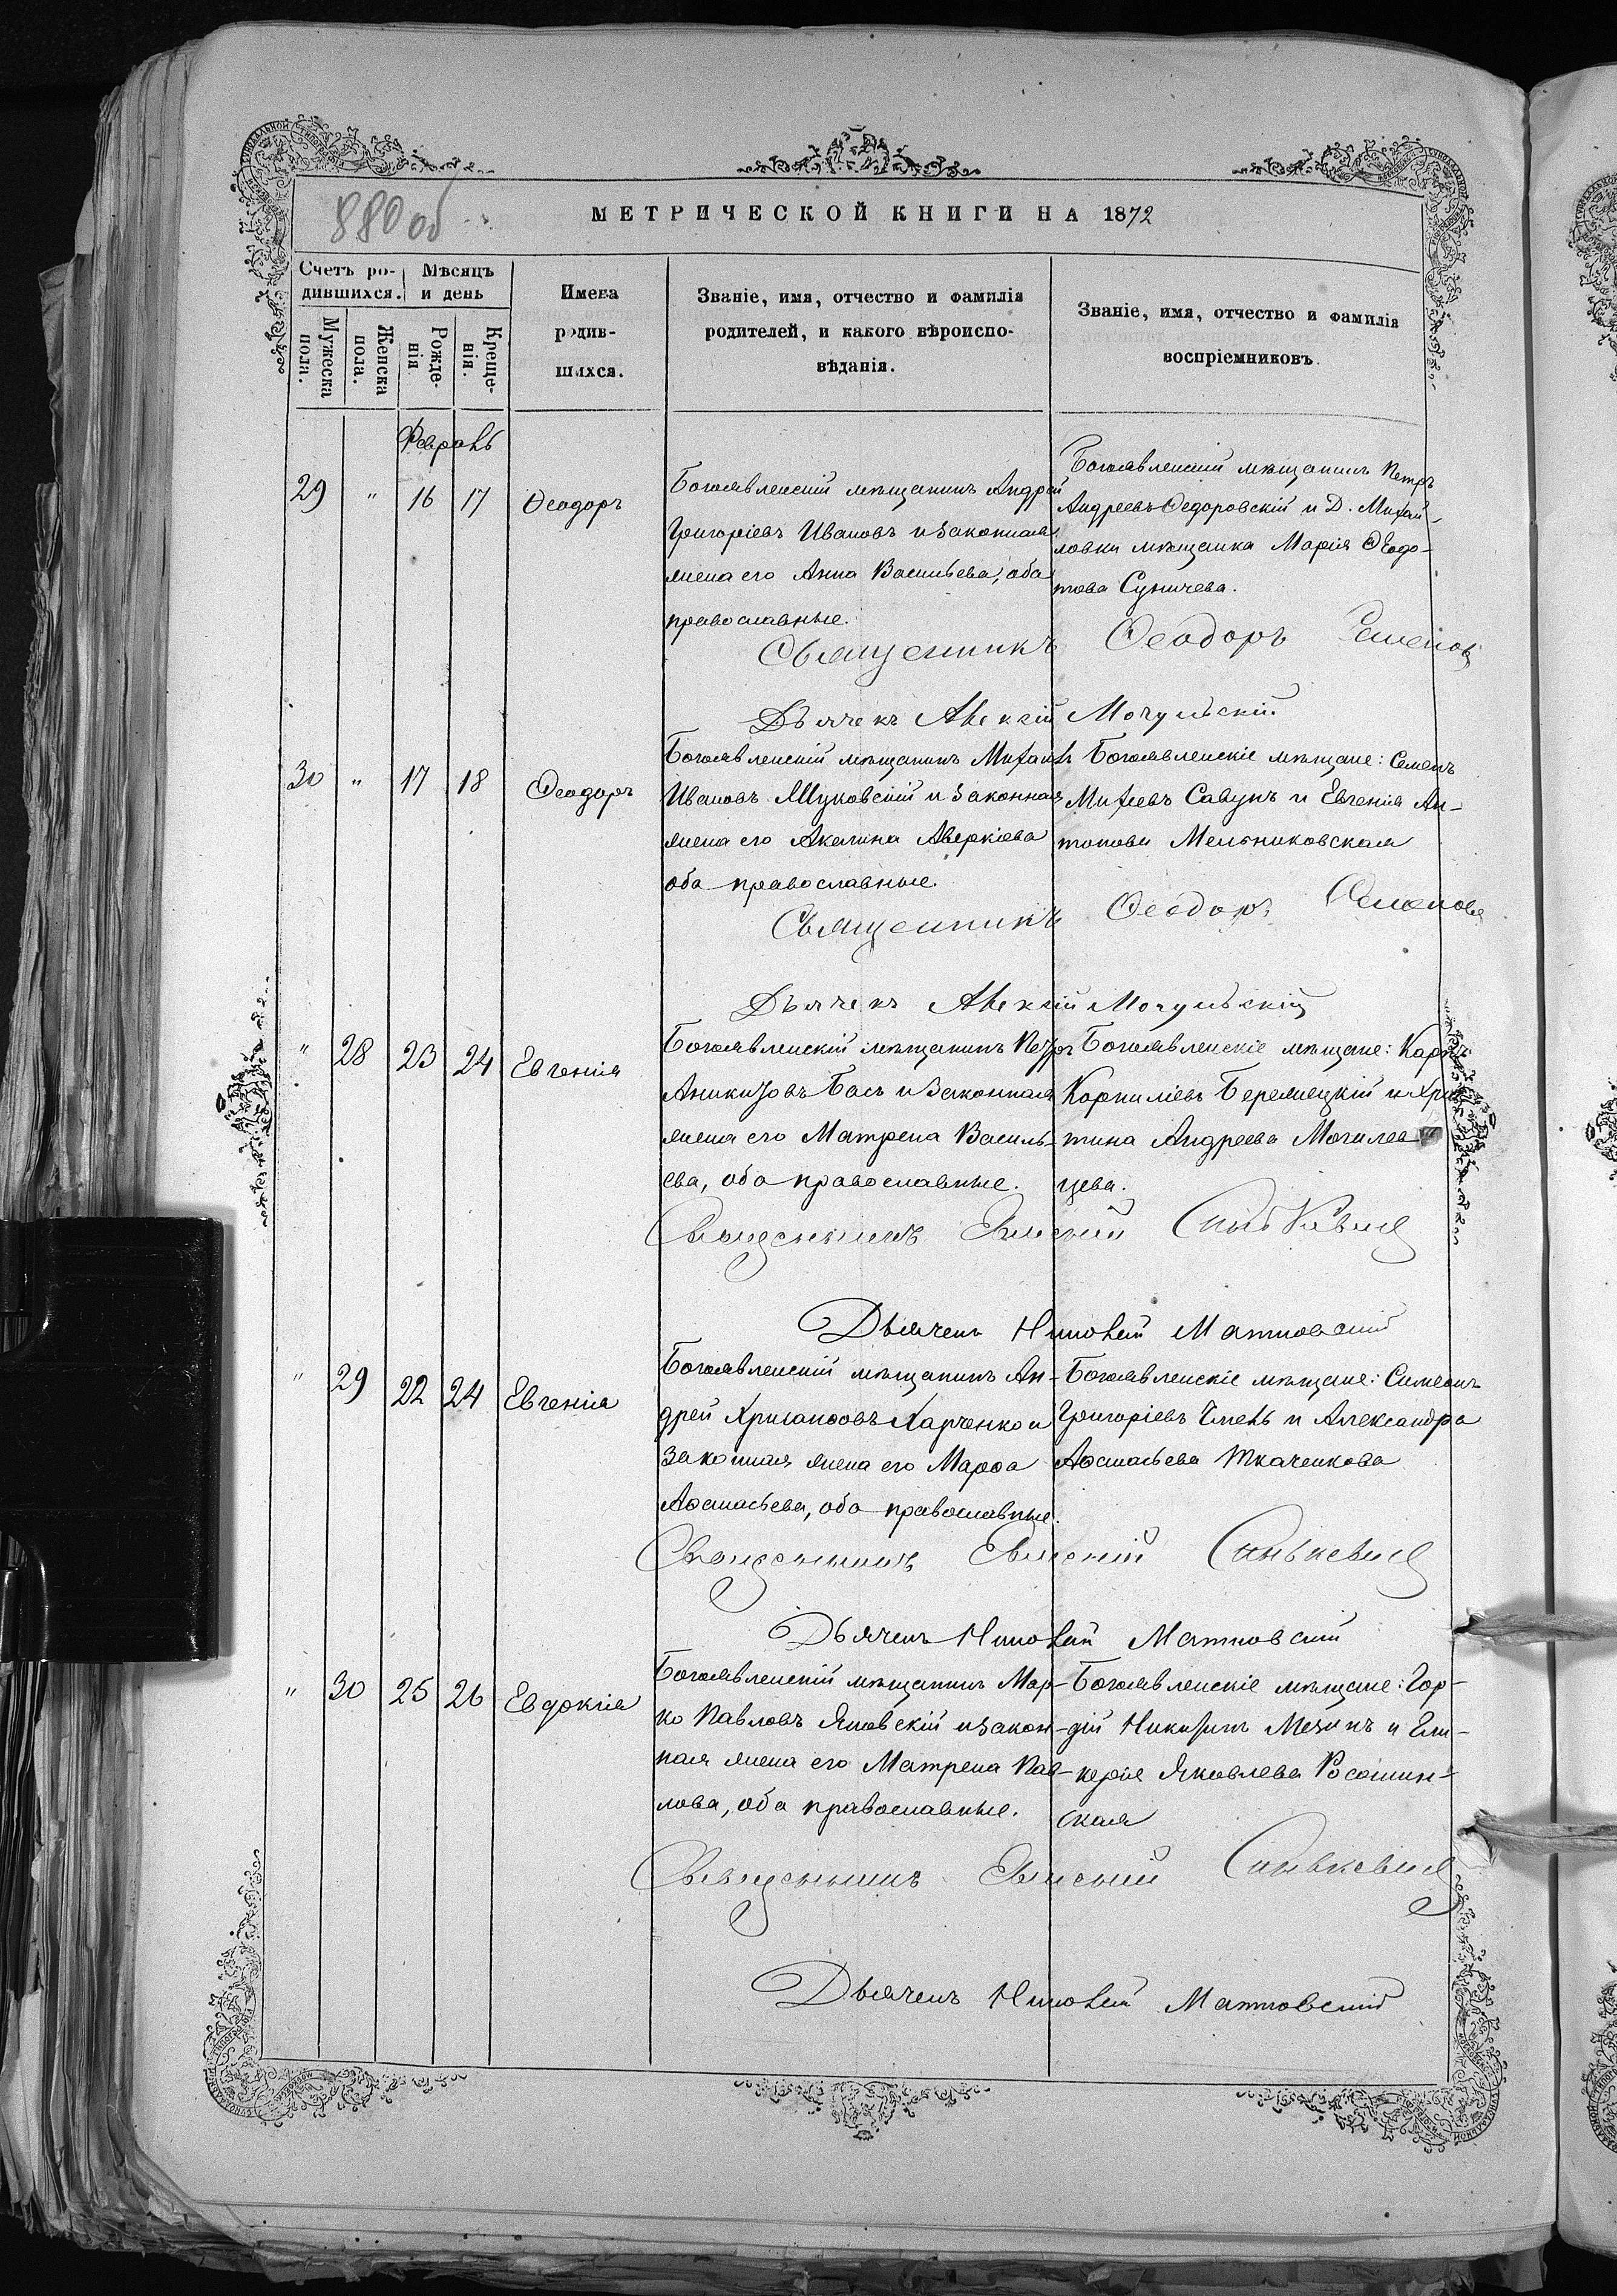 880 об
МЕТРИЧЕСКОЙ КНИГИ НА 1872
Счетъ ро-
дившихся.
Мѣсяцъ
и день
Мужеска
пола.
Женска
пола.
Рожде-
нія
Креще-
нія.
Имена
родив-
шихся.
Званіе, имя, отчество и фамилія
родителей, и какого вѣроиспо-
вѣданія.
Званіе, имя, отчество и фамилія
воспріемниковъ
Февраль
29 " 16 17 Ѳеодоръ
Богоявленскій мѣщанинъ Андрей
Григоріевъ Ивановъ и законная
жена его Анна Васильева, оба
православные.
Богоявленскій мѣщанинъ Петръ
Андреевъ Ѳедоровскій и Д. Михай-
ловки мѣщанка Марія Ѳедо-
това Суничева.
Священникъ Ѳеодоръ Семеновъ
Дьячекъ Алексій Мочульскій
30 " 17 18 Ѳеодоръ
Богоявленскій мѣщанинъ Михаилъ
Ивановъ Жуковскій и законная
жена его Акилина Аверкіева
оба православные.
Богоявленскіе мѣщане: Семенъ
Михеевъ Савунъ и Евгенія Ан-
тонова Мельниковская
Священникъ Ѳеодоръ Семеновъ
Дьячекъ Алексій Мочульскій
" 28 23 24 Евгенія
Богоявленскій мѣщанинъ Петръ
Аникитовъ Басъ и законная
жена его Матрена Василь-
ева, оба православные.
Богоявленскіе мѣщане: Карпъ
Корниліевъ Бережецкій и Хрис
тина Андреева Могилев
цева.
Священникъ Евгеній Синькевичъ
Дьячекъ Матковскій
" 29 22 24 Евгенія
Богоявленскій мѣщанинъ Ан-
дрей Хрисанфовъ Харченко и
законная жена его Марѳа
Аѳанасьева, оба православные.
Богоявленскіе мѣщане: Симеонъ
Григоріевъ и Александра
Аѳанасьева Ткаченкова
Священникъ Евгеній Синькевичъ
Дьячекъ Матковскій
" 30 25 26 Евдокія
Богоявленскій мѣщанинъ Мар-
ко Павловъ Яновскій и закон-
ная жена его Матрена Пав-
лова, оба православные.
Богоявленскіе мѣщане: Гор-
дій Никитинъ Мезинъ и Гли-
керія Яковлева Росошин-
ская
Священникъ Евгеній Синькевичъ
Дьячекъ Матковскій